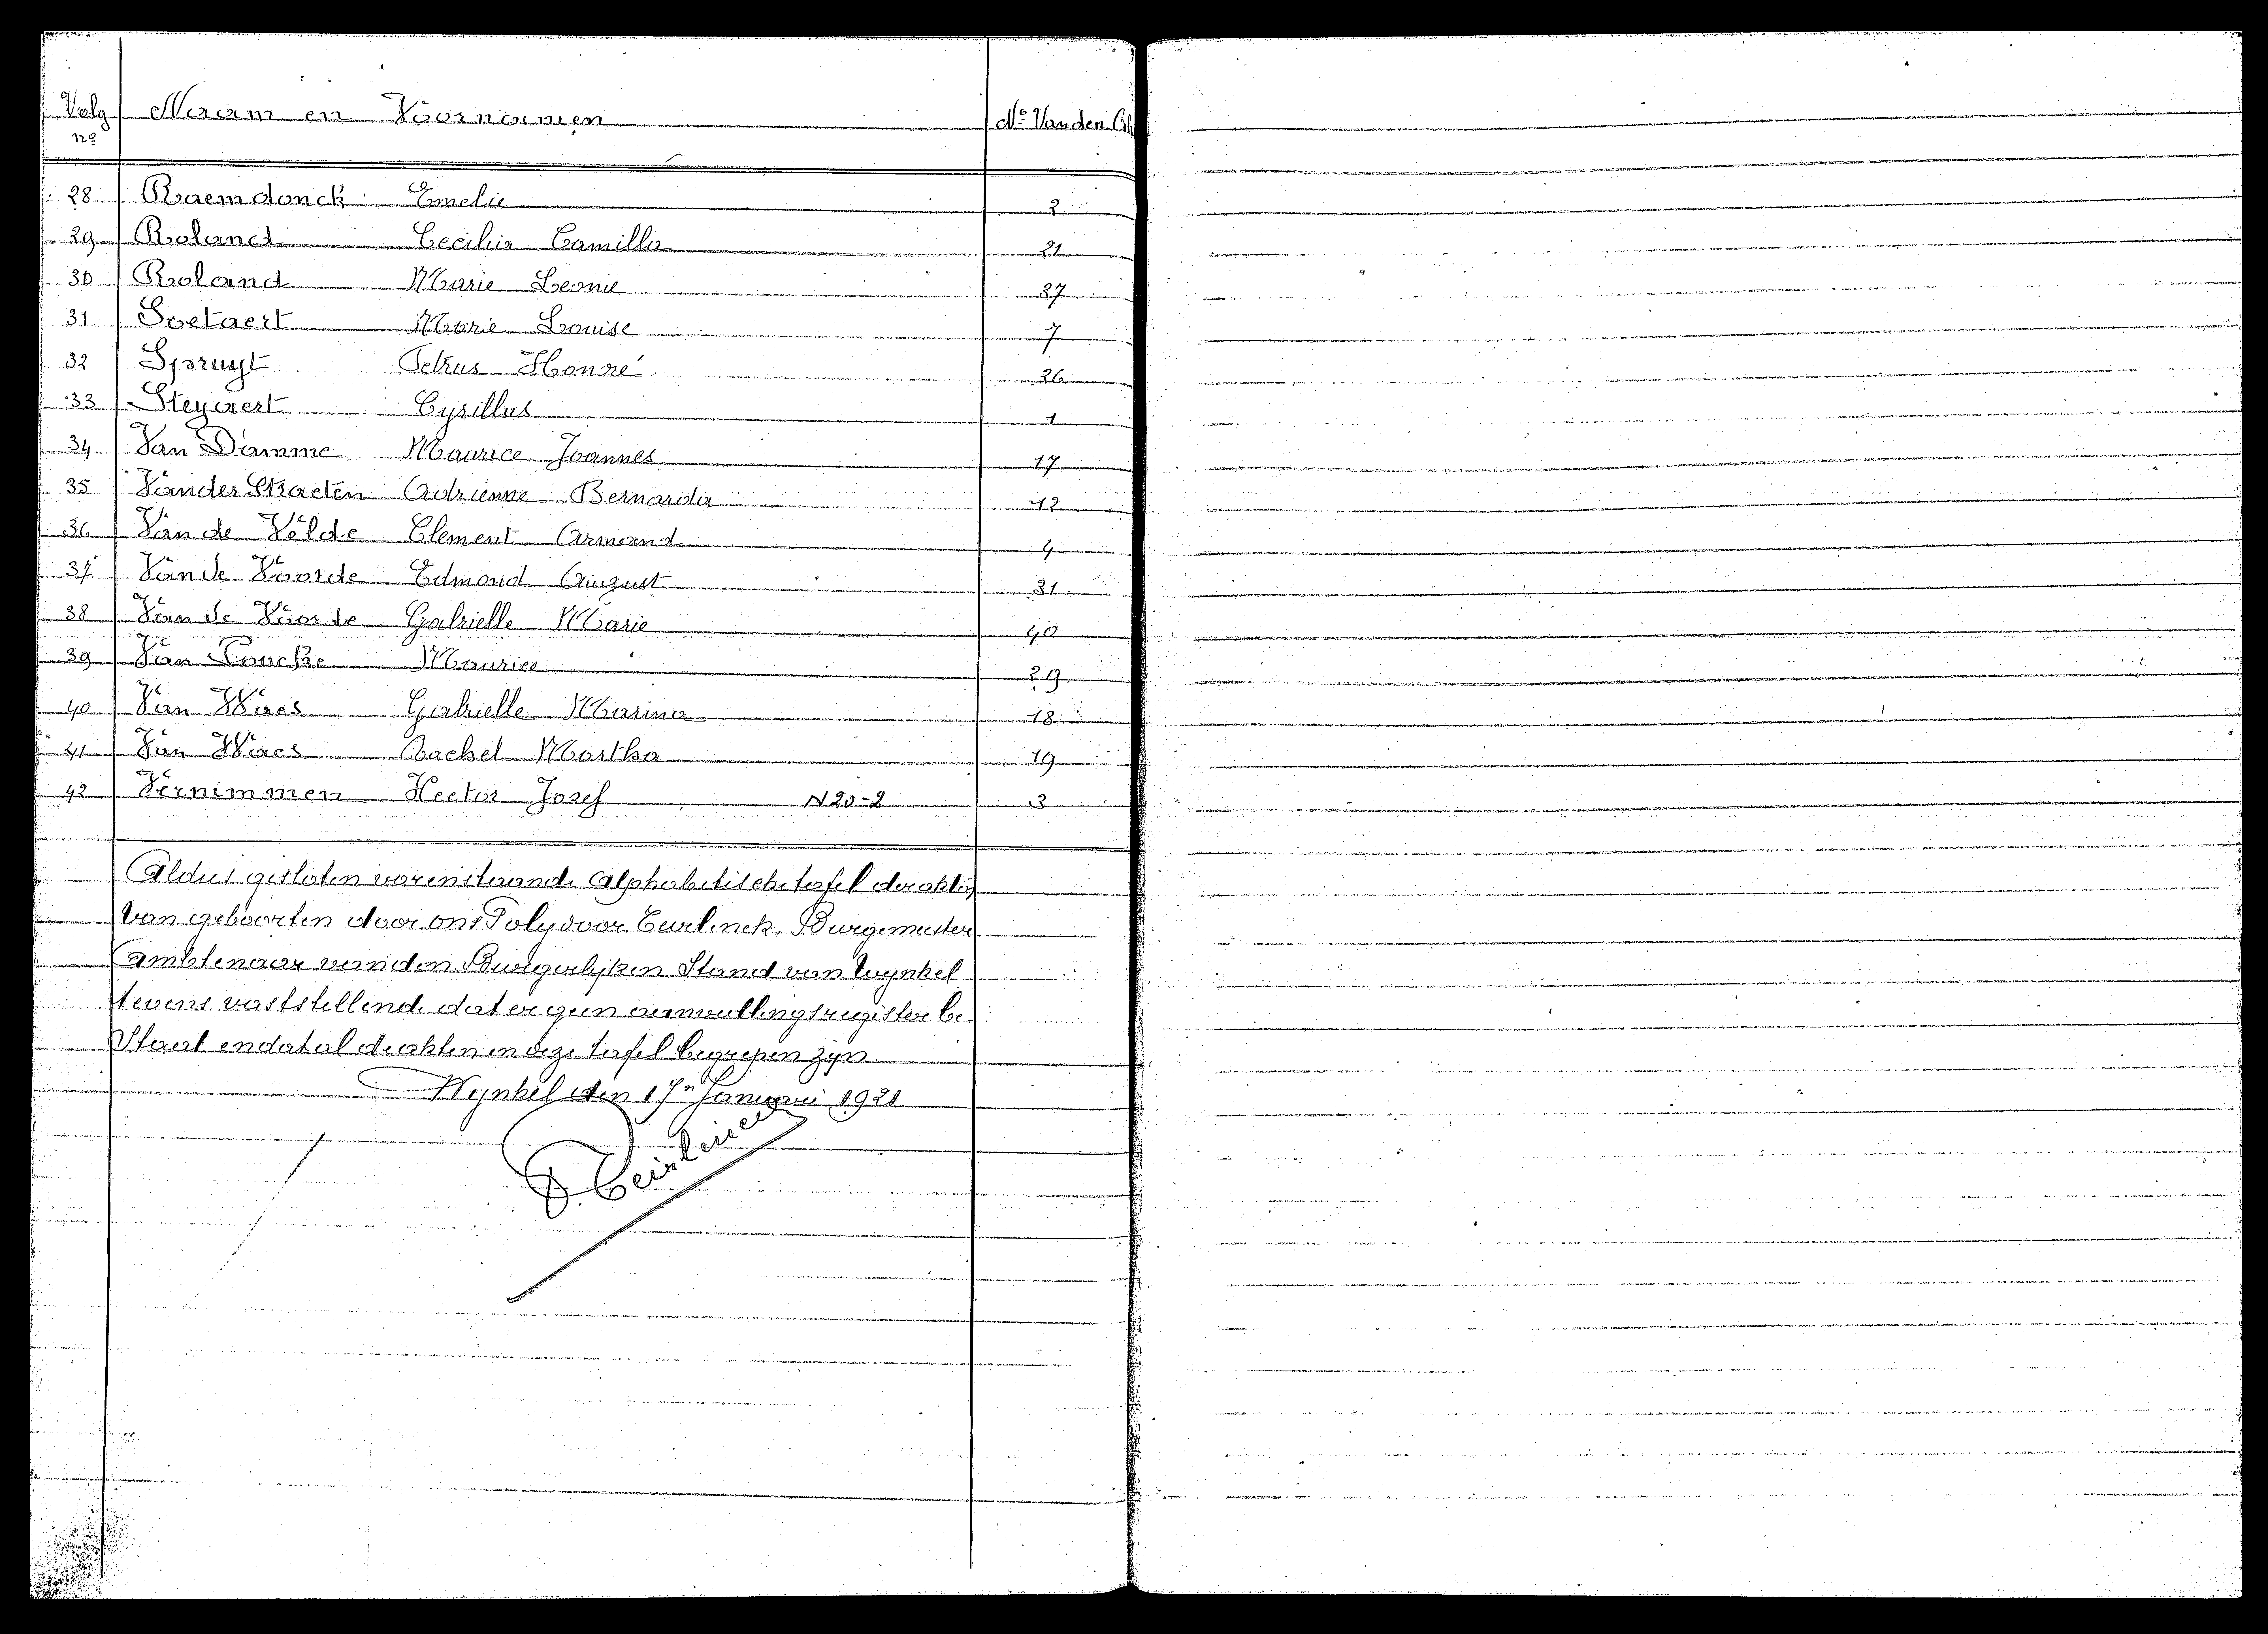 Volg Naam en Voornamen No Vanden Ak
no
28 Raemdonck Emelie 2
29 Roland Cecilia Camilla 21
30 Roland Marie Leonie 37
31 Soetaert Marie Louise 7
32 Spruyt Petrus Honoré 26
33 Steyaert Cyrillus 1
34 Van Damme Maurice Joannes 17
35 Vander Straeten Adrienne Bernarda 12
36 Van de Velde Clement Armand 4
37 Van de Voorde Edmond August 31
38 Van de Voorde Gabrielle Marie 40
39 Van Poucke Maurice 29
40 Van Waes Gabrielle Marina 18
41 Van Waes Rachel Martha 19
42 Vernimmen Hector Jozef N 20-2 3
Aldus gesloten vorenstaande Alphabetische tafel der akten
Van geboorten door ons Polydoor Teirlinck Burgemeester
Ambtenaar van den Burgerlijken Stand van Wynkel
tevens vaststellende dat er geen aanvullingsregister be
Staat en dat al de akten in deze tafel begrepen zyn
Wynkel den 1 Januari 1921
P. Teirlinck